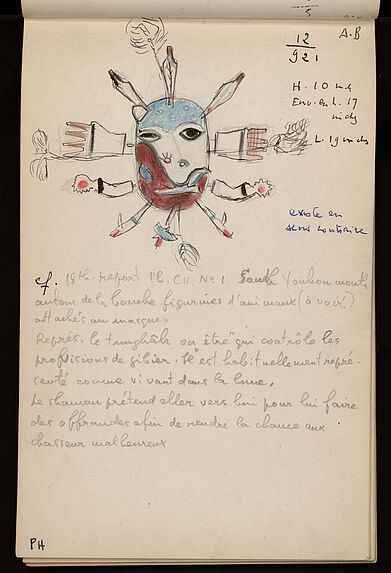 5
A.B
12
921
H. 10 ins
Env. en L. 17
inchs
L. 19 inchs
existe en
sens contraire
cf. 18th report Pl. CII. No 1 South Youkon mouth
autour de la bouche figurines d'animaux (à voir)
attachés au masque.
Représ. le tunghâk ou être qui contrôle les
provisions de gibier. Il est habituellement repré-
senté comme vivant dans la lune.
Le shaman prétend aller vers lui pour lui faire
des offrandes afin de rendre la chance aux
chasseur malheureux
PH